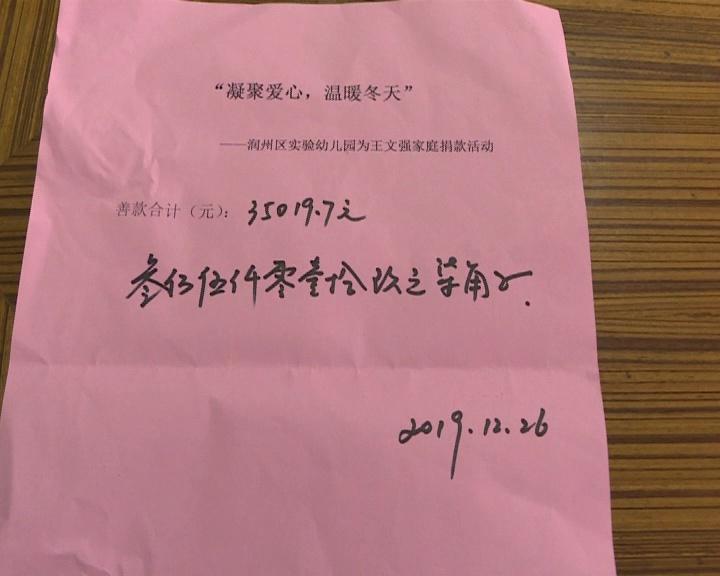 “凝聚爱心，温暖冬天”
——润州区实验幼儿园为王文强家庭捐款活动
善款合计（元）：35019.7元
叁亿伍仟零壹拾玖元柒角
2019.12.26